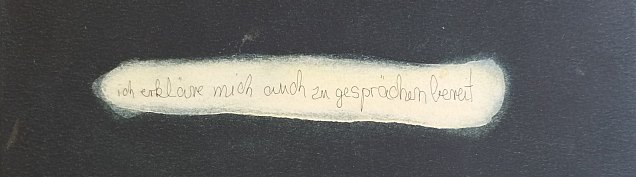 ich erkläre mich auch zu gesprächen bereit